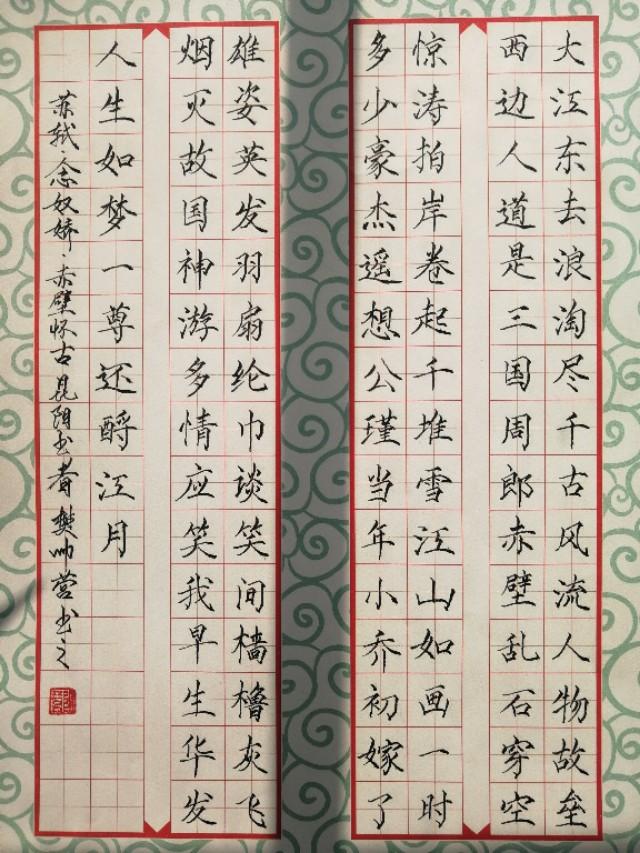 大江东去浪淘尽千古风流人物故垒
西边人道是三国周郎赤壁乱石穿空
惊涛拍岸卷起千堆雪江山如画一时
多少豪杰遥想公瑾当年小乔初嫁了
雄姿英发羽扇纶巾谈笑间樯橹灰飞
烟灭故国神游多情应笑我早生华发
人生如梦一尊还酹江月
苏轼·念奴娇·赤壁怀古昆阳书者樊帅营书之